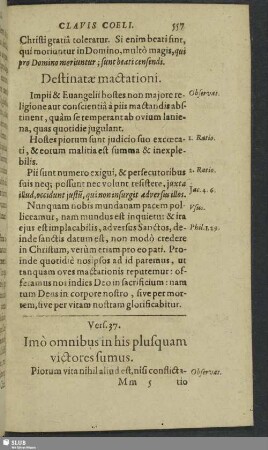 CLAVIS COELI. 557
Christi gratiâ toleratur. Si enim beati sint,
qui moriuntur in Domino, multò magis, qui
pro Domino moriuntur; sunt beati censendi.
Destinatæ mactationi.
Impii & Euangelii hostes non majore re- Observat.
ligione aut conscientiâ à piis mactandis abs-
tinent, quàm se temperant ab ovium lanie-
na, quas quotidie jugulant.
Hostes piorum sunt judicio suo excœca- 1. Ratio.
ti, & eorum malitia est summa & inexple-
bilis.
Pii sunt numero exigui, & persecutoribus 2. Ratio.
suis neq; possunt nec volunt resistere, juxta
illud, occidunt justũ, qui non insurgit adversus illos. Jac. 4. 6.
Nunquam nobis mundanam pacem pol- Vsus.
liceamur, nam mundus est inquietus: & ira
ejus est implacabilis, adversus Sanctos, de- Phil. 1. 29.
inde sanctis datum est, non modò credere
in Christum, verùm etiam pro eo pati. Pro-
inde quotidie nos ipsos ad id paremus, ut
tanquam oves mactationis reputemur: of-
feramus nos indies Deo in sacrificium: nam
tum Deus in corpore nostro, sive per mor-
tem, sive per vitam nostram glorificabitur.
Vers. 37.
Imò omnibus in his plusquam
victores sumus.
Piorum vita nihil aliud est, nisi conflicta- Observat.
Mm 5 tio
SLUB